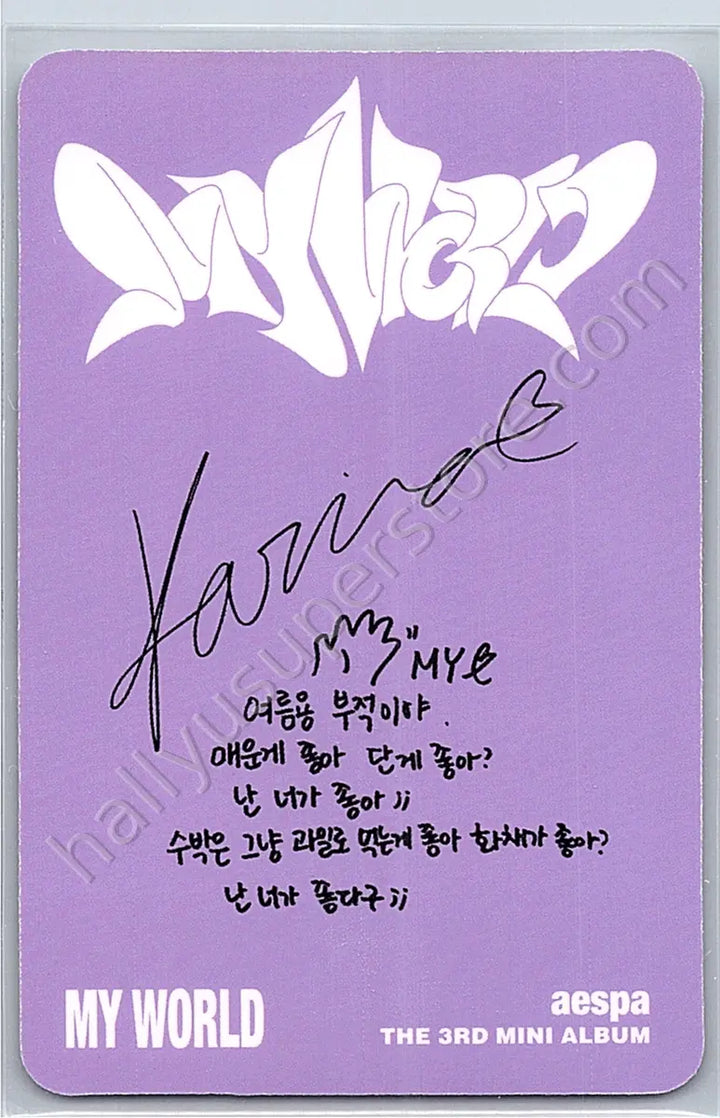 MY WORLD
Karina
"MY
여름용 부적이야.
매운게 좋아 단게 좋아?
난 너가 좋아 ;;
수박은 그냥 과일로 먹는게 좋아 화채가 좋아?
난 너가 좋다구 ;;
MY WORLD
aespa
THE 3RD MINI ALBUM
hallyusuperstore.com